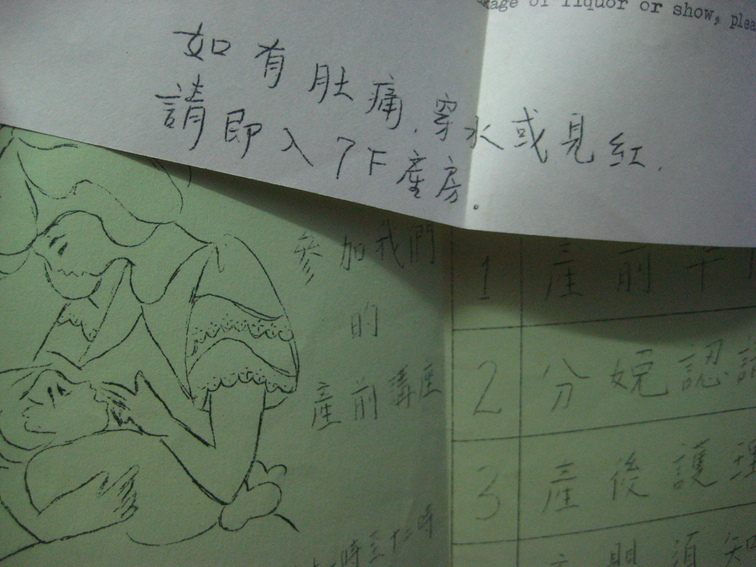 of liquor or show,
如有肚痛,穿水或見紅,
請即入7F產房。
參加我們
的
產前講座
1 產前
2 分娩認識
3 產後護理
須知